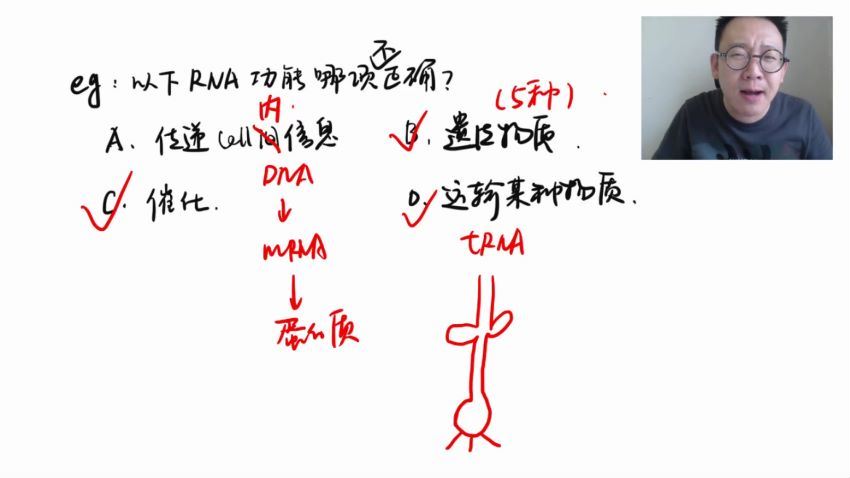 不
eg:以下RNA功能哪项正确?
内
(5种)
A. 传递cell间信息
B. 遗传物质.
DNA
C. 催化.
D. 运输某种物质.
mRNA
tRNA
蛋白质